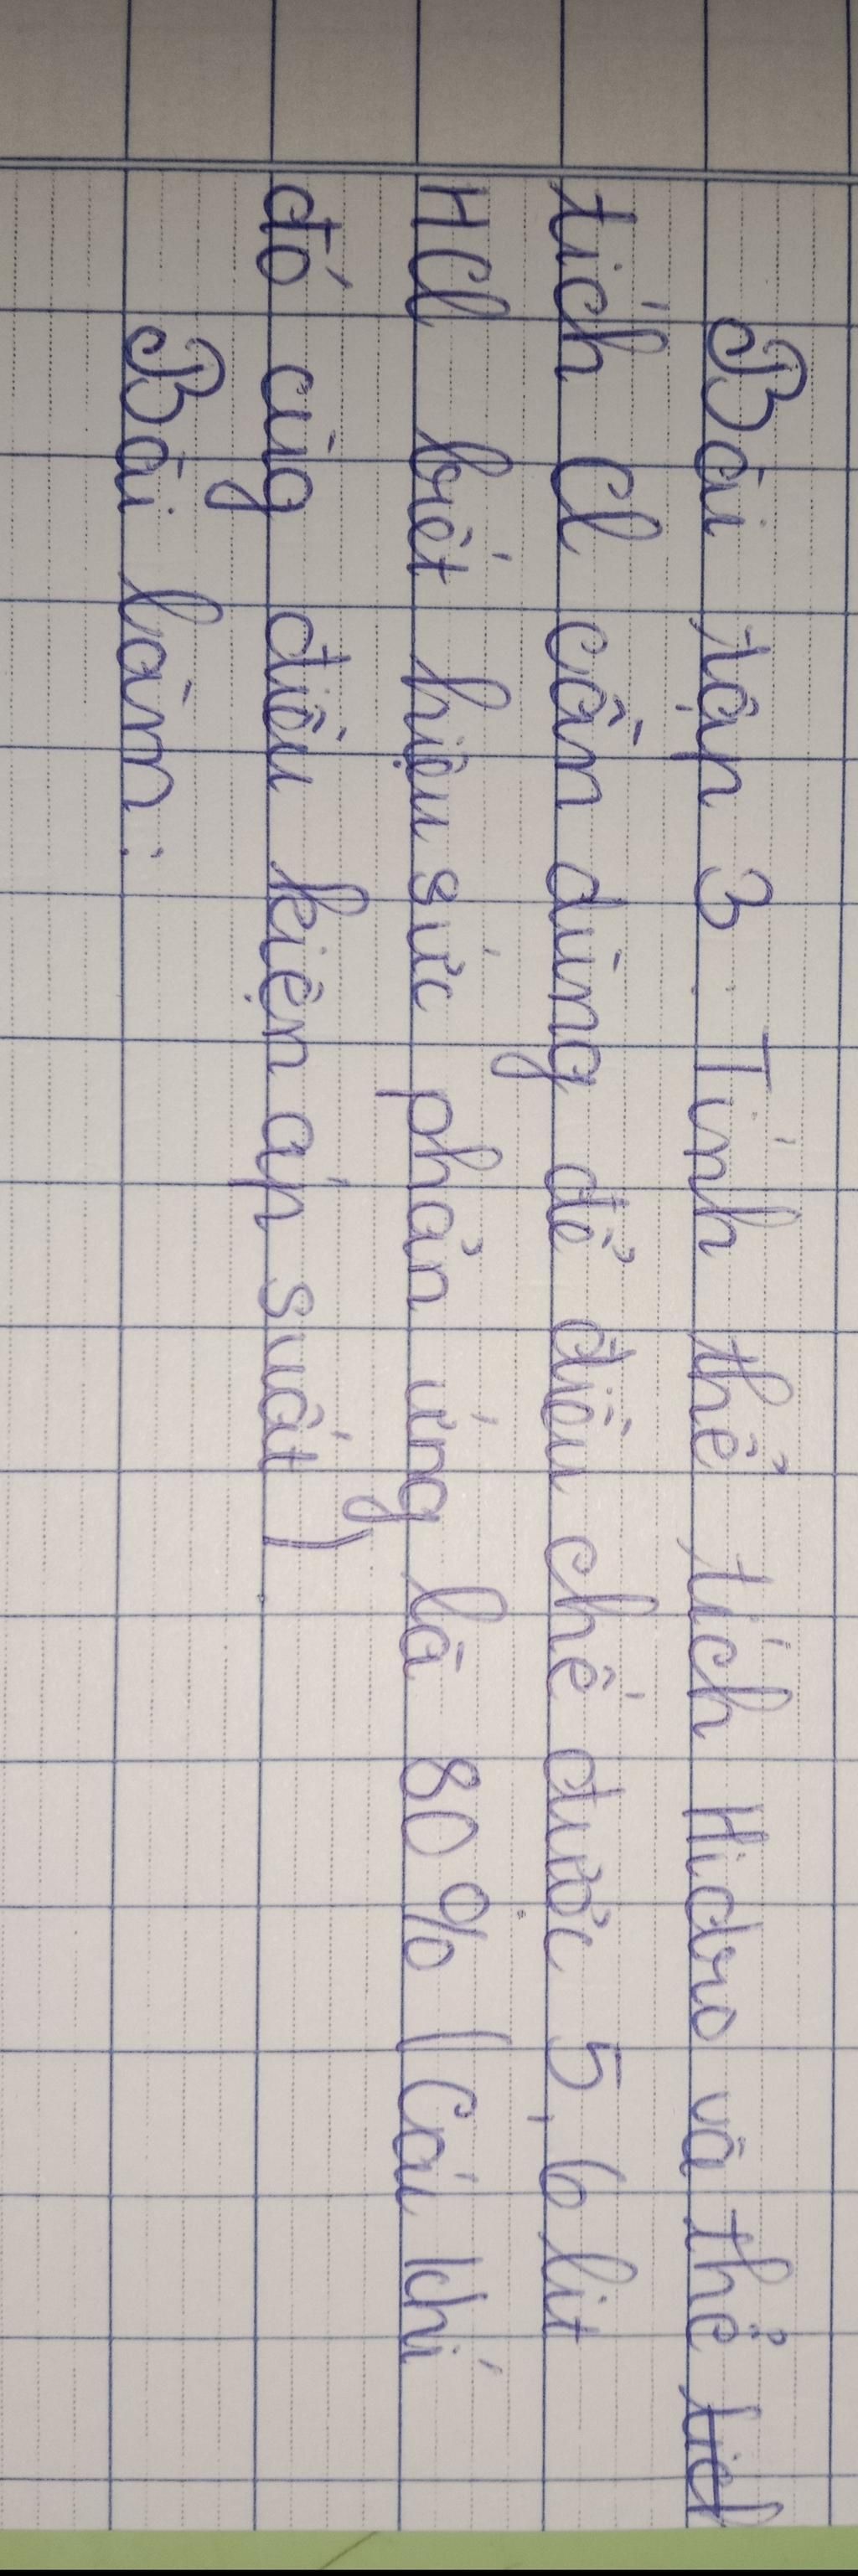 Bài tập 3. Tính thể tích Hidro và thể
tích Cl cần dùng để điều chế được 5,6 lit
HCl biết hiệu sức phản ứng là 80% (Cái khí
đó cùg điều kiện áp suất).
Bài làm: